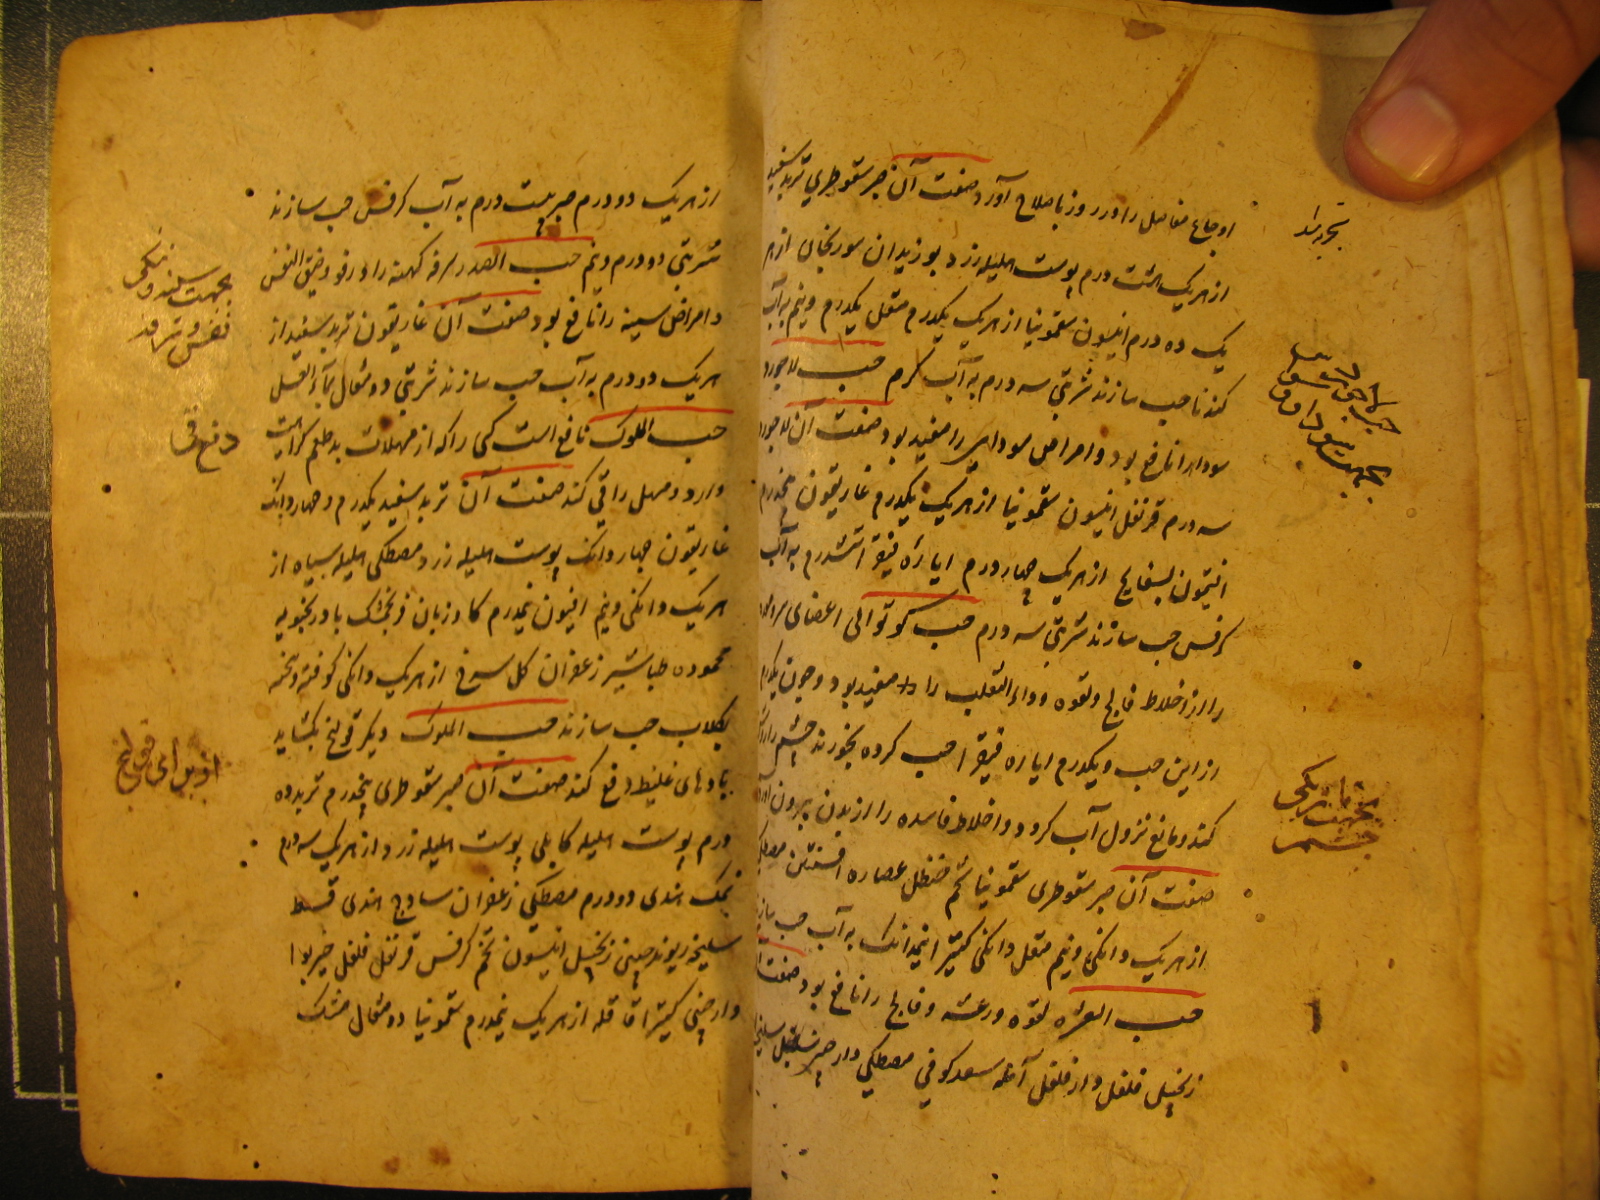 اوجاع مفاصل را در روز باصلاح آورد صفت آن صبر سقوطری تربد سفید
از هر یک هشت درم پوست هلیله زرد بوزیدان سورنجان از هر
یک ده درم انیسون سقمونیا از هر یک یکدرم مقل یکدرم و نیم به آب
کندنا حب سازند شربتی سه درم به آب گرم حب لاجورد
سودا را نافع بود و امراض سودایی را مفید بود صفت آن لاجورد
سه درم قرنفل انیسون سقمونیا از هر یک یکدرم غاریقون پنجدرم
افتیمون بسفایج از هر یک چهار درم ایاره فیقرا ششدرم به آب
کرفس حب سازند شربتی سه درم حب کوتوالی اعضای سر
را از اخلاط فالج و لقوه و داء الثعلب را مفید بود و چون یکدرم
از این حب و یکدرم ایاره فیقرا حب کرده بخورند چشم را
کند و مانع نزول آب گردد و اخلاط فاسده را از بدن بیرون
صفت آن صبر سقوطری سقمونیا شحم حنظل عصاره افسنتین مصطکی
از هر یک دانکی و نیم مقل دانکی کتیرا نیمدانک به آب حب سازند
حب العشره لقوه و رعشه و فالج را نافع بود صفت
زنجبیل فلفل دار فلفل آمله سعد کوفی مصطکی دارچینی سنبل سلیخه
بجهت تاریکی
چشم
از هر یک دو درم صبر بیست درم به آب کرفس حب سازند
شربتی دو درم و نیم حب الصدر سرفه کهنه را و ربو و ضیق النفس
و امراض سینه را نافع بود صفت آن غاریقون تربد سفید از
هر یک دو درم به آب حب سازند شربتی دو مثقال بماء العسل
حب الملوک نافع است کسی را که از مسهلات بد طعم کراهیت
دارد و مسهل را قی کند صفت آن تربد سفید یکدرم و چهار دانک
غاریقون چهار دانک پوست هلیله زرد مصطکی هلیله سیاه از
هر یک دانکی و نیم افیون نیمدرم کاوزبان فرنجمشک بادرنجبویه
محموده طباشیر زعفران کل سرخ از هر یک دانکی کوفته و بیخته
بکلاب حب سازند حب الملوک دیکر قولنج بکشاید
بادهای غلیظ دفع کند صفت آن صبر سقوطری پنجدرم تربد ده
درم پوست هلیله کابلی پوست هلیله زرد از هر یک سه درم
نمک هندی دو درم مصطکی زعفران ساذج هندی قسط
سلیخه ریوند چینی زنجبیل انیسون تخم کرفس قرنفل فلفل خیربوا
دارچینی کتیرا قاقله از هر یک نیمدرم سقمونیا دو مثقال مشک
بجهت سینه و تنکی
نفس و سرفه
دفع قی
از برای قولنج